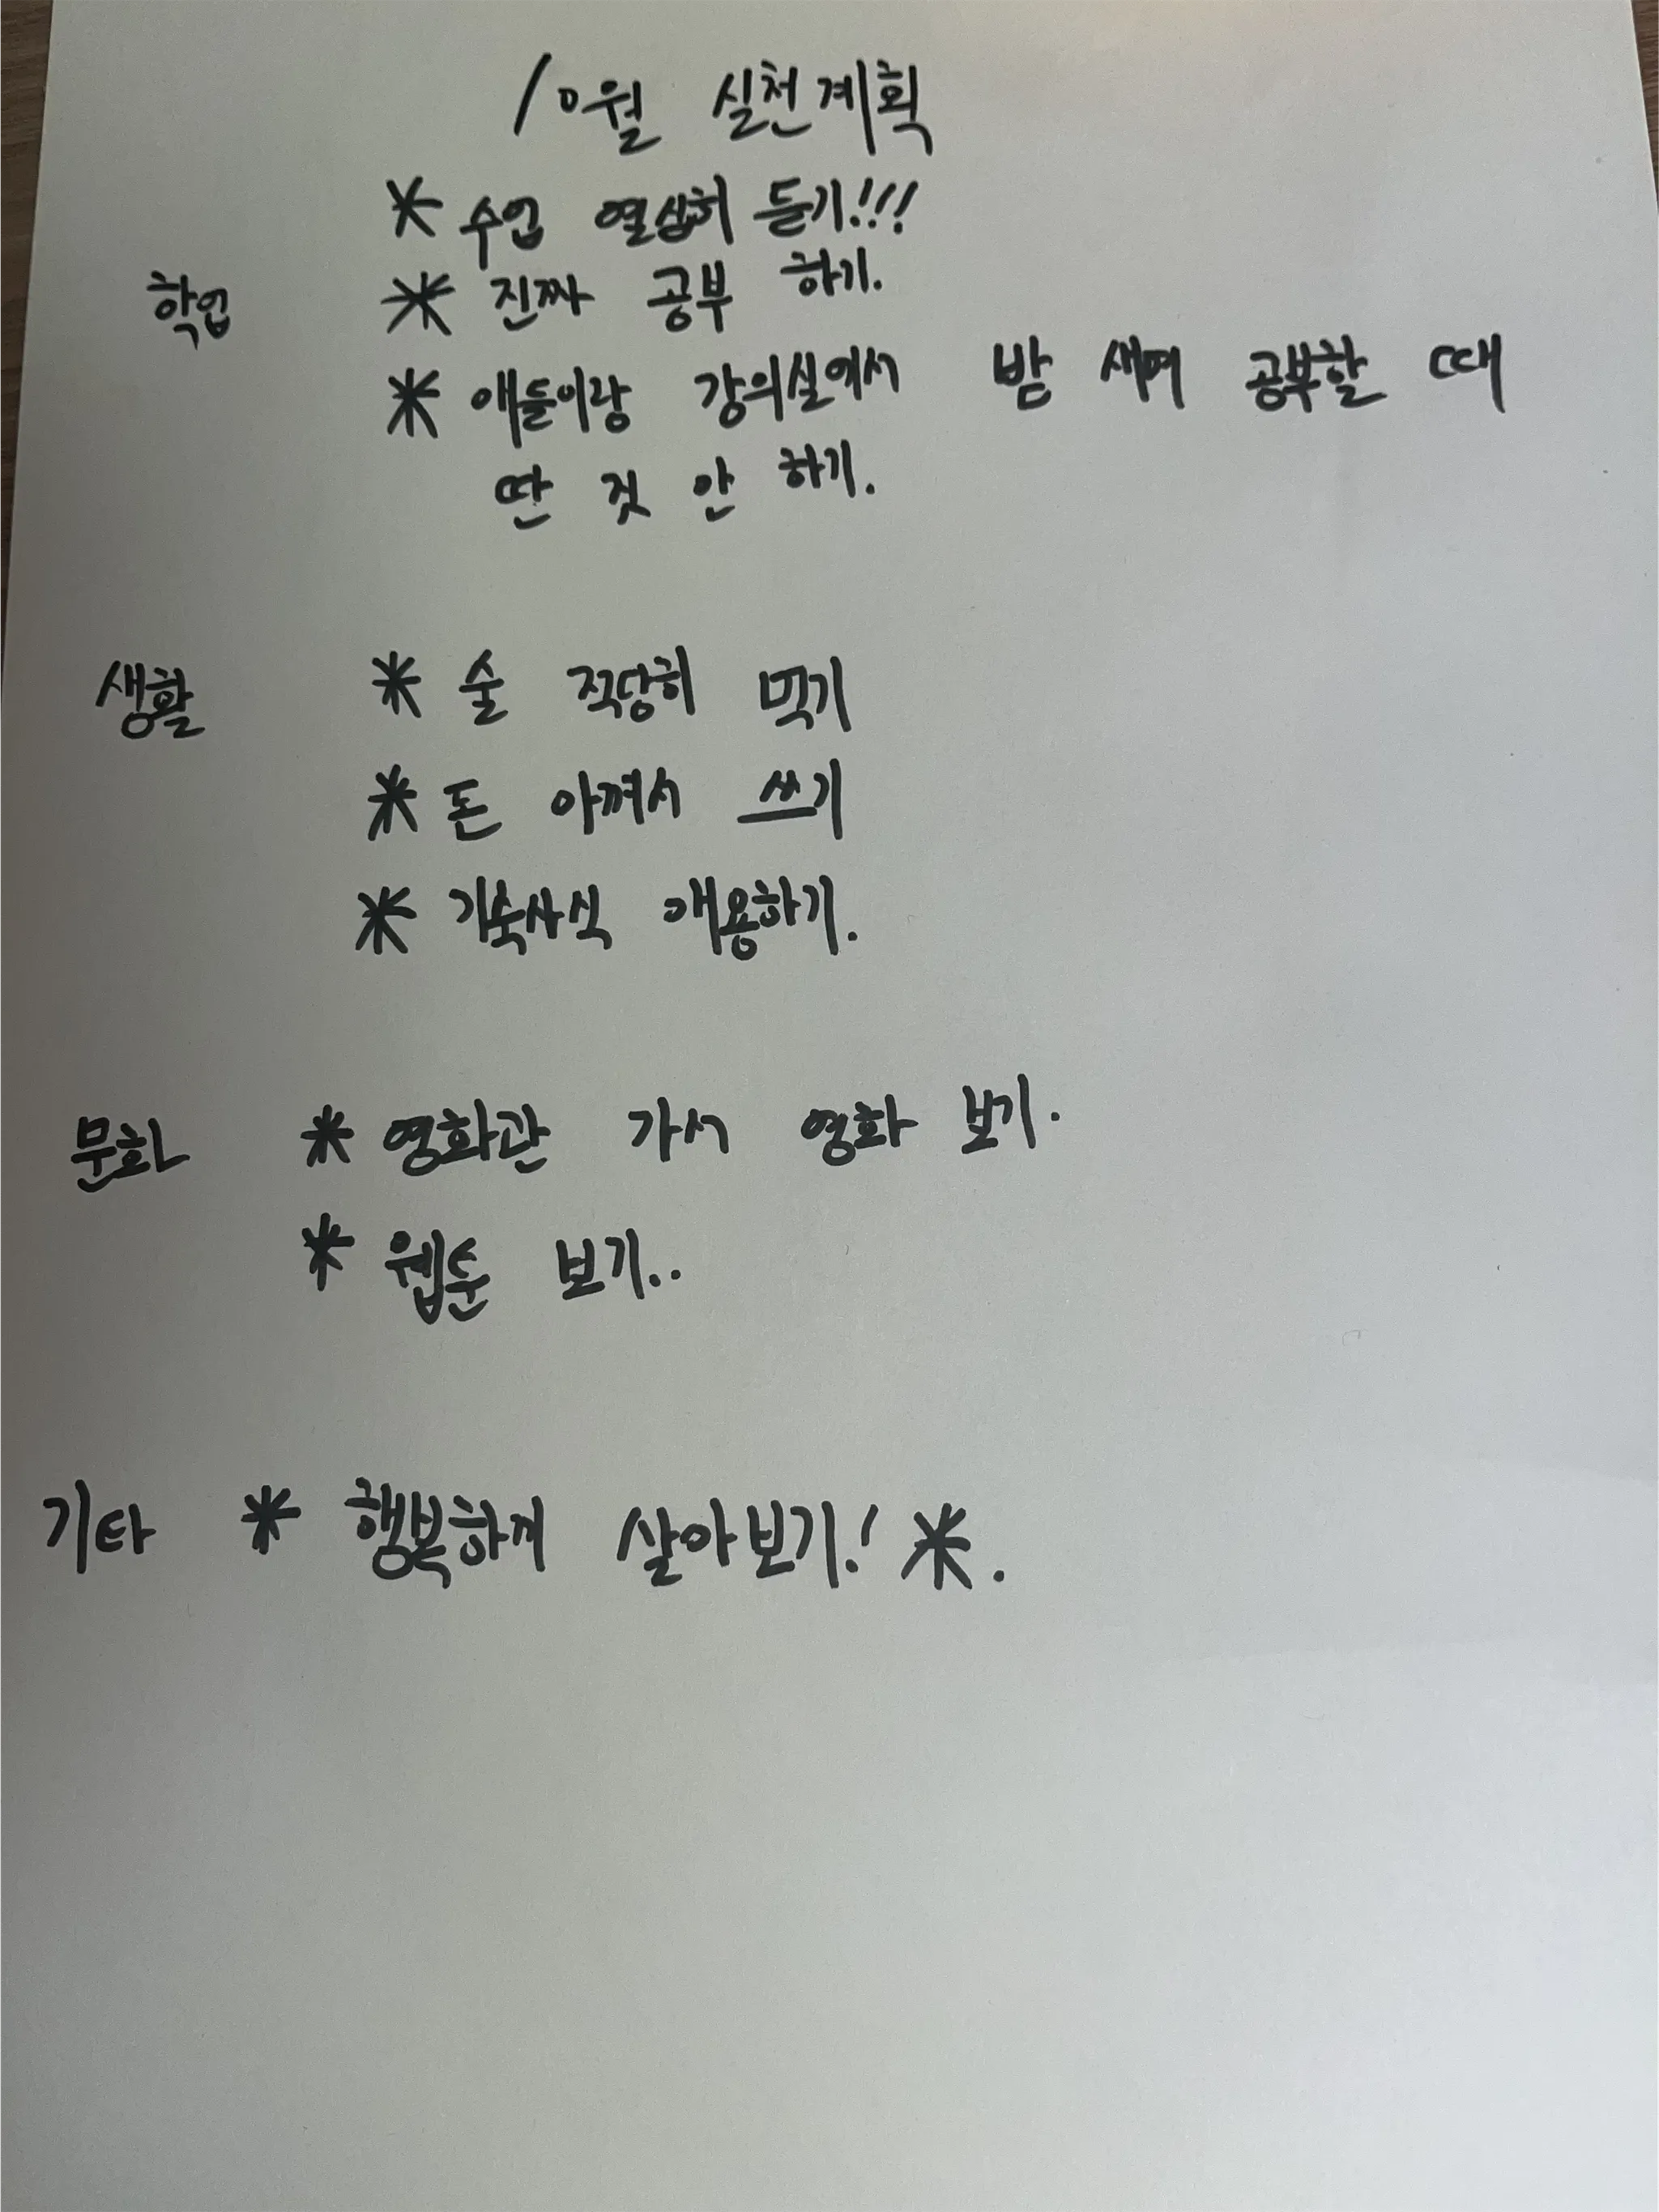 10월 실천계획
* 수업 열심히 듣기!!!
학업 * 진짜 공부 하기.
* 애들이랑 강의실에서 밤 새며 공부할 때
딴 것 안 하기.
생활 * 술 적당히 먹기
* 돈 아껴서 쓰기
* 기숙사식 애용하기.
문화 * 영화관 가서 영화 보기.
* 웹툰 보기..
기타 * 행복하게 살아보기! *.